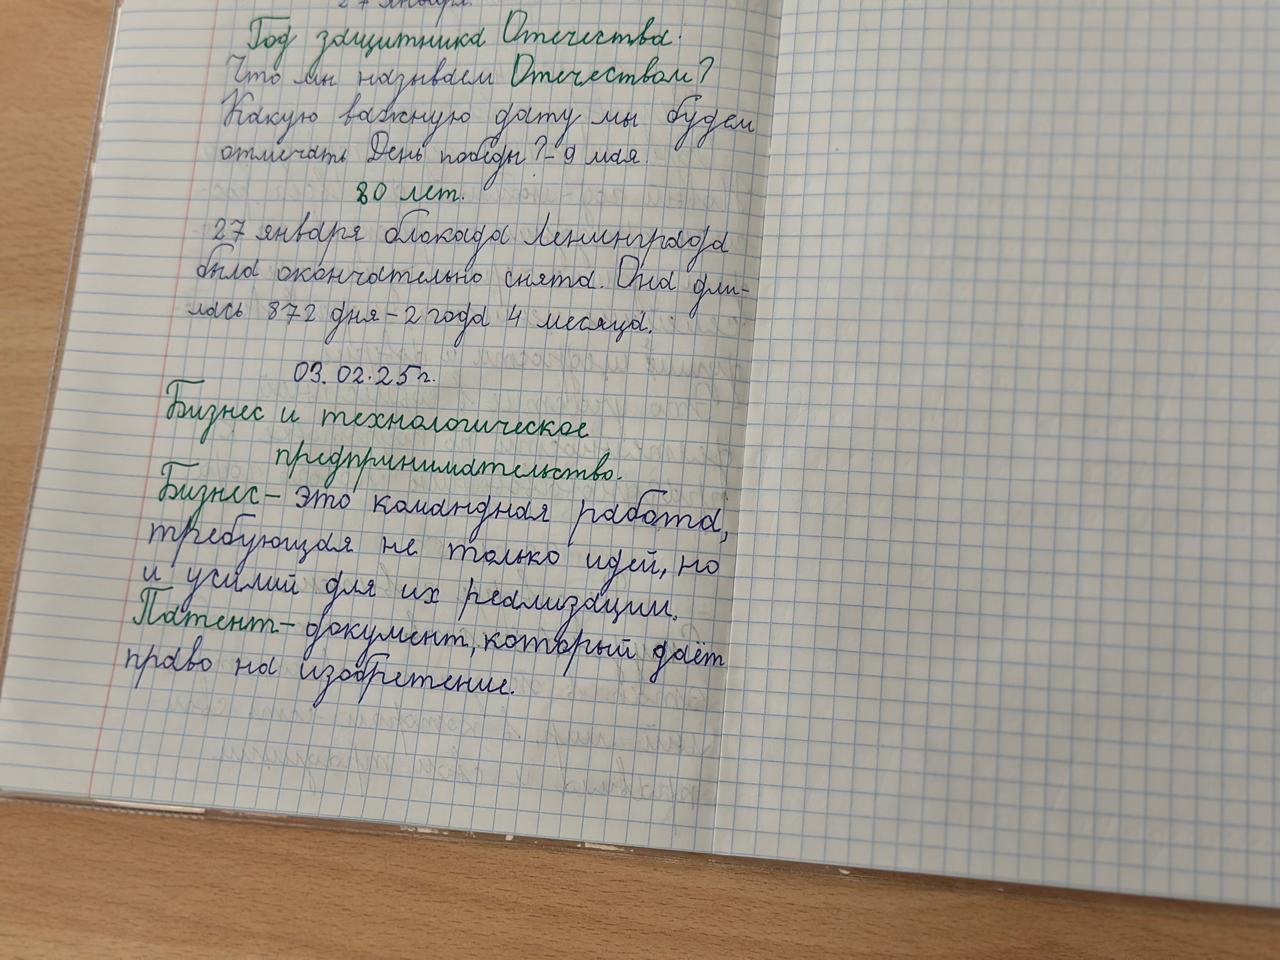 27 января.
Год защитника Отечества.
Что мы называем Отечеством?
Какую важную дату мы будем
отмечать День победы? - 9 мая.
80 лет.
27 января блокада Ленинграда
была окончательно снята. Она дли-
лась 872 дня - 2 года 4 месяца.
03.02.25 г.
Бизнес и технологическое
предпринимательство.
Бизнес - это командная работа,
требующая не только идей, но
и усилий для их реализации.
Патент - документ, который даёт
право на изобретение.